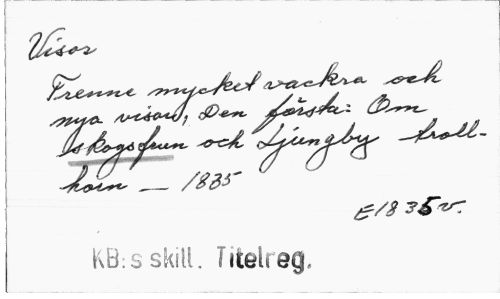 Visor
Trenne mycket vackra och
nya visor, Den första: Om
skogsfrun och Ljungby troll-
horn — 1835
E1835v.
KB:s skill. Titelreg.